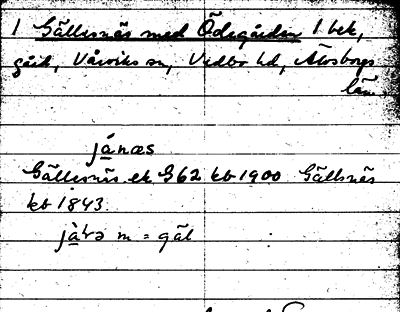 1 Gällesnäs med Ödegården 1 bek,
gård, Vårviks sn, Vedbo hd, Älvsborgs
län
jánæs
Gällesnäs ek G62 kb 1900 Gällsnäs
kb 1843.
m = gäl